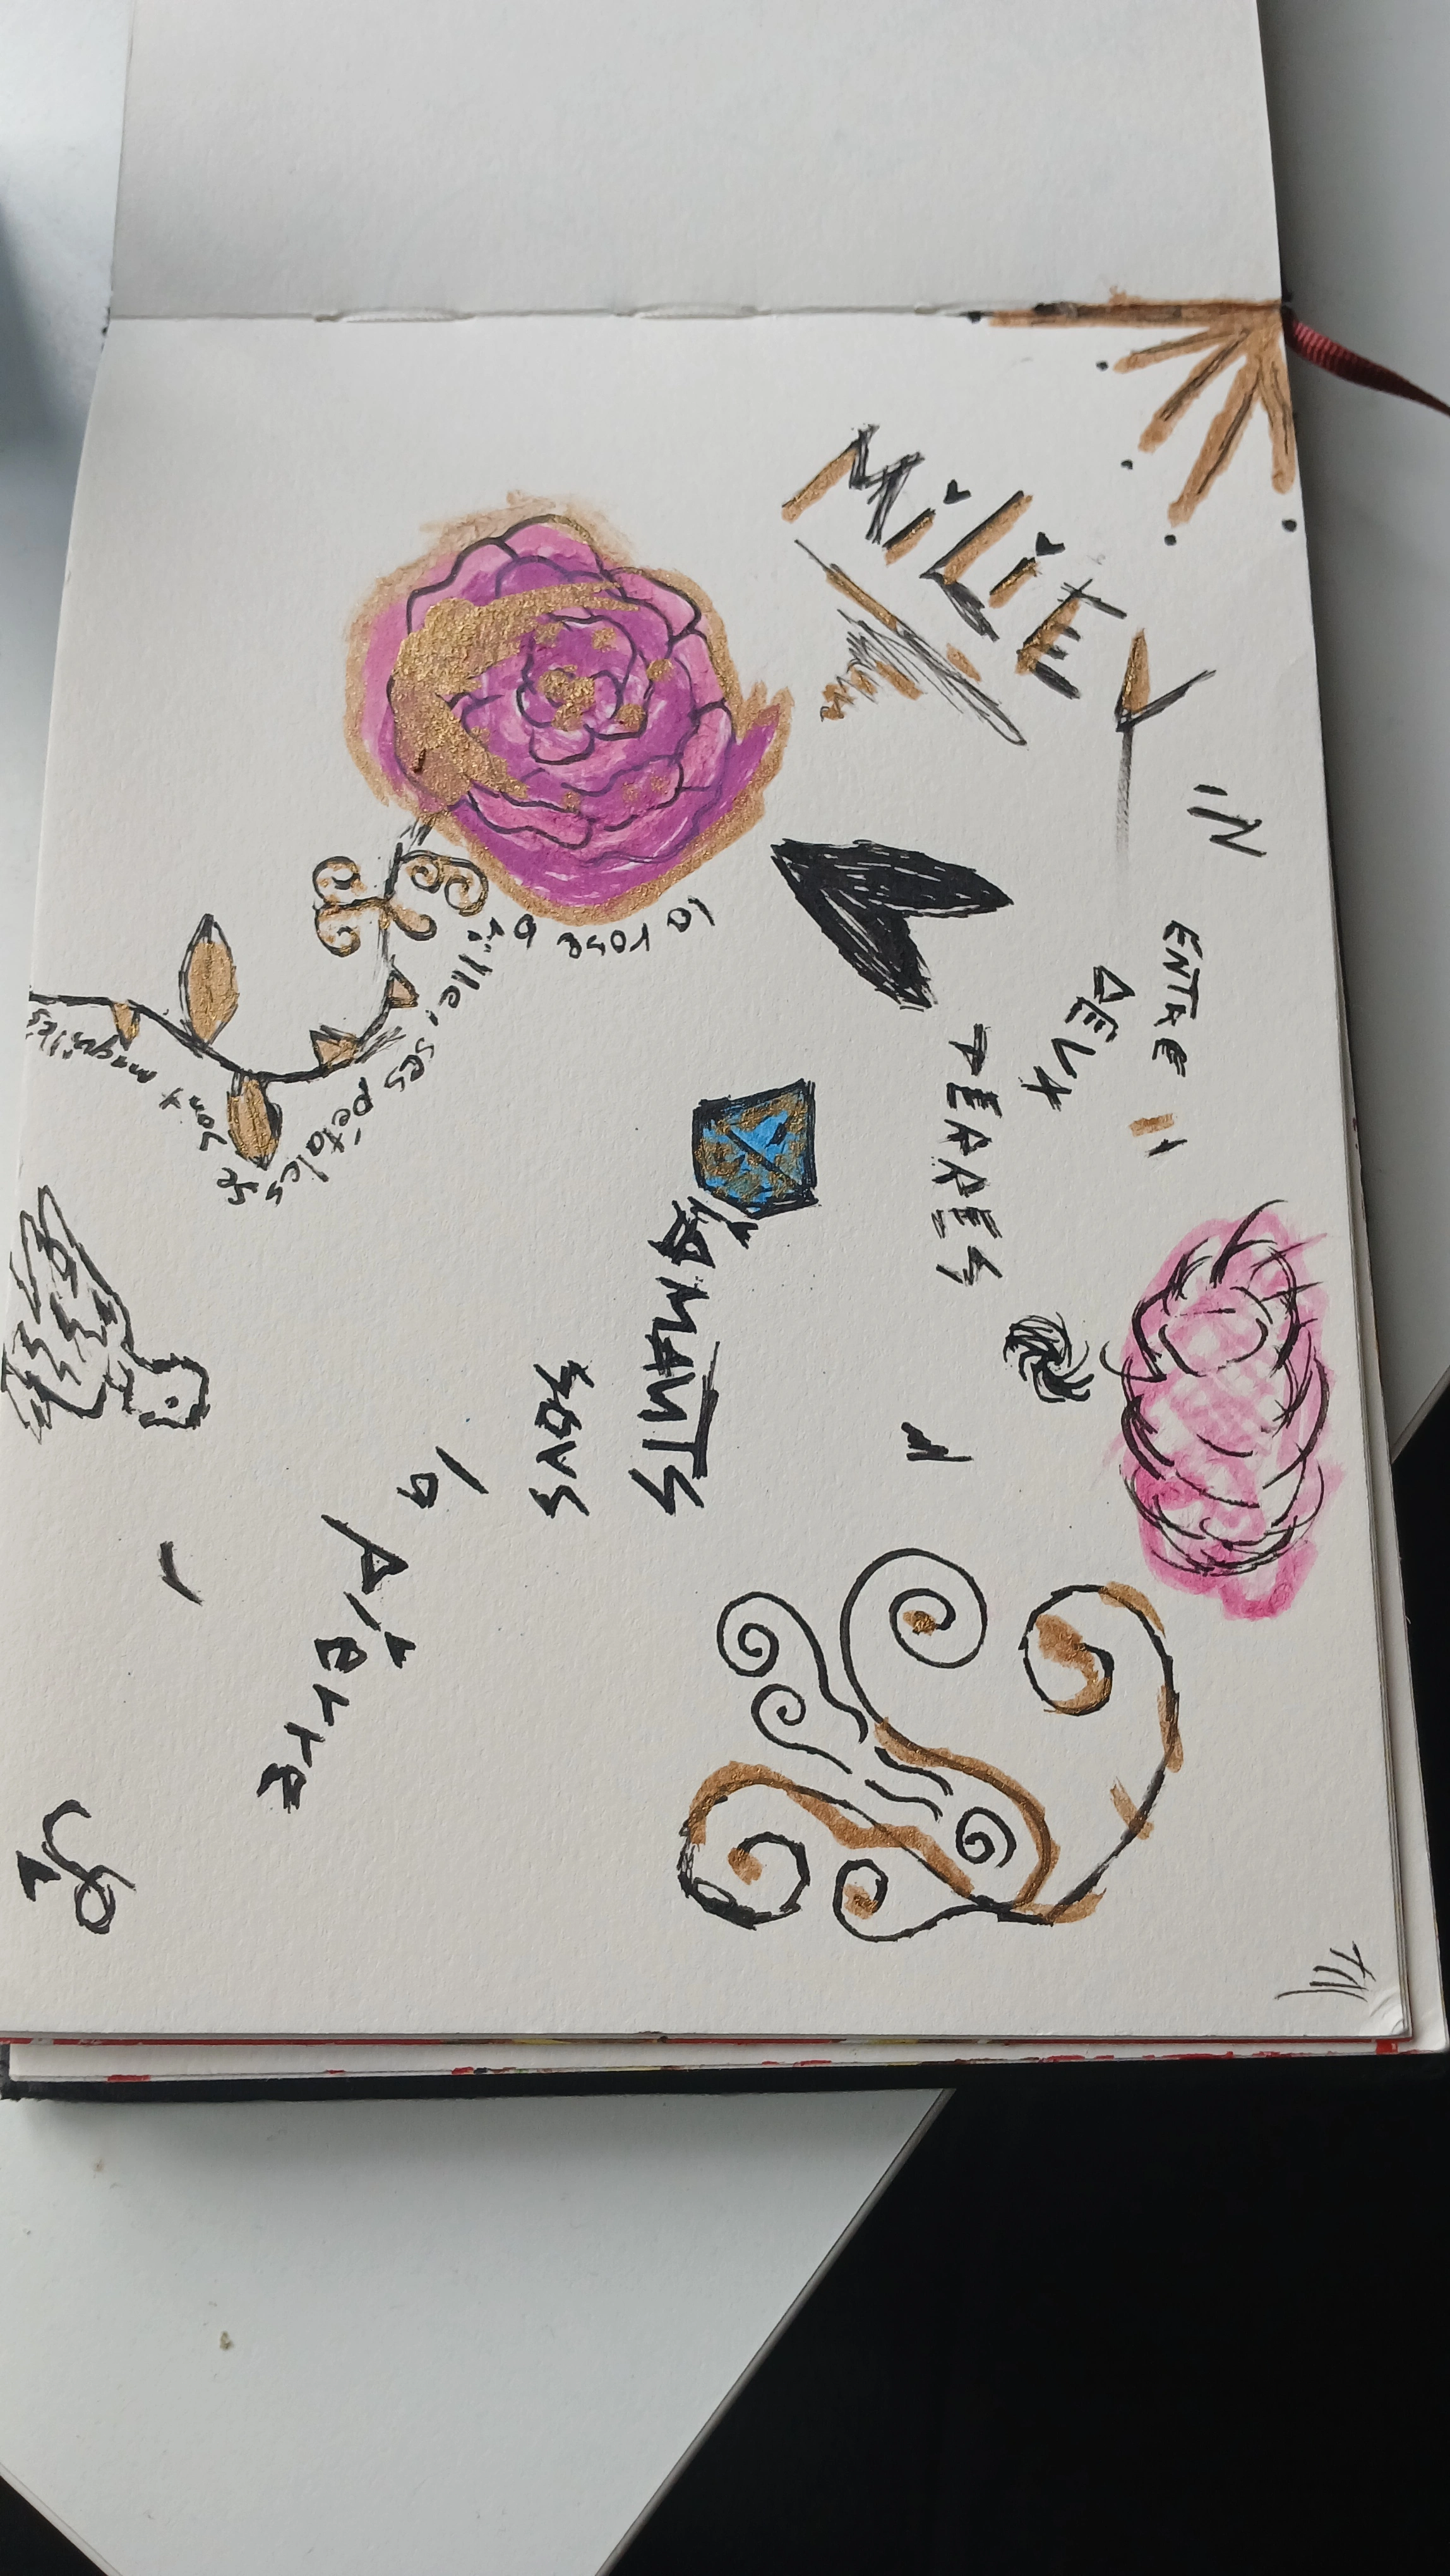 MiLiEU
IN
ENTRE
DEUX
TERRES
DiAMANTS
SOUS
la
pierre
la rose brille, ses pétales se sont maquillés